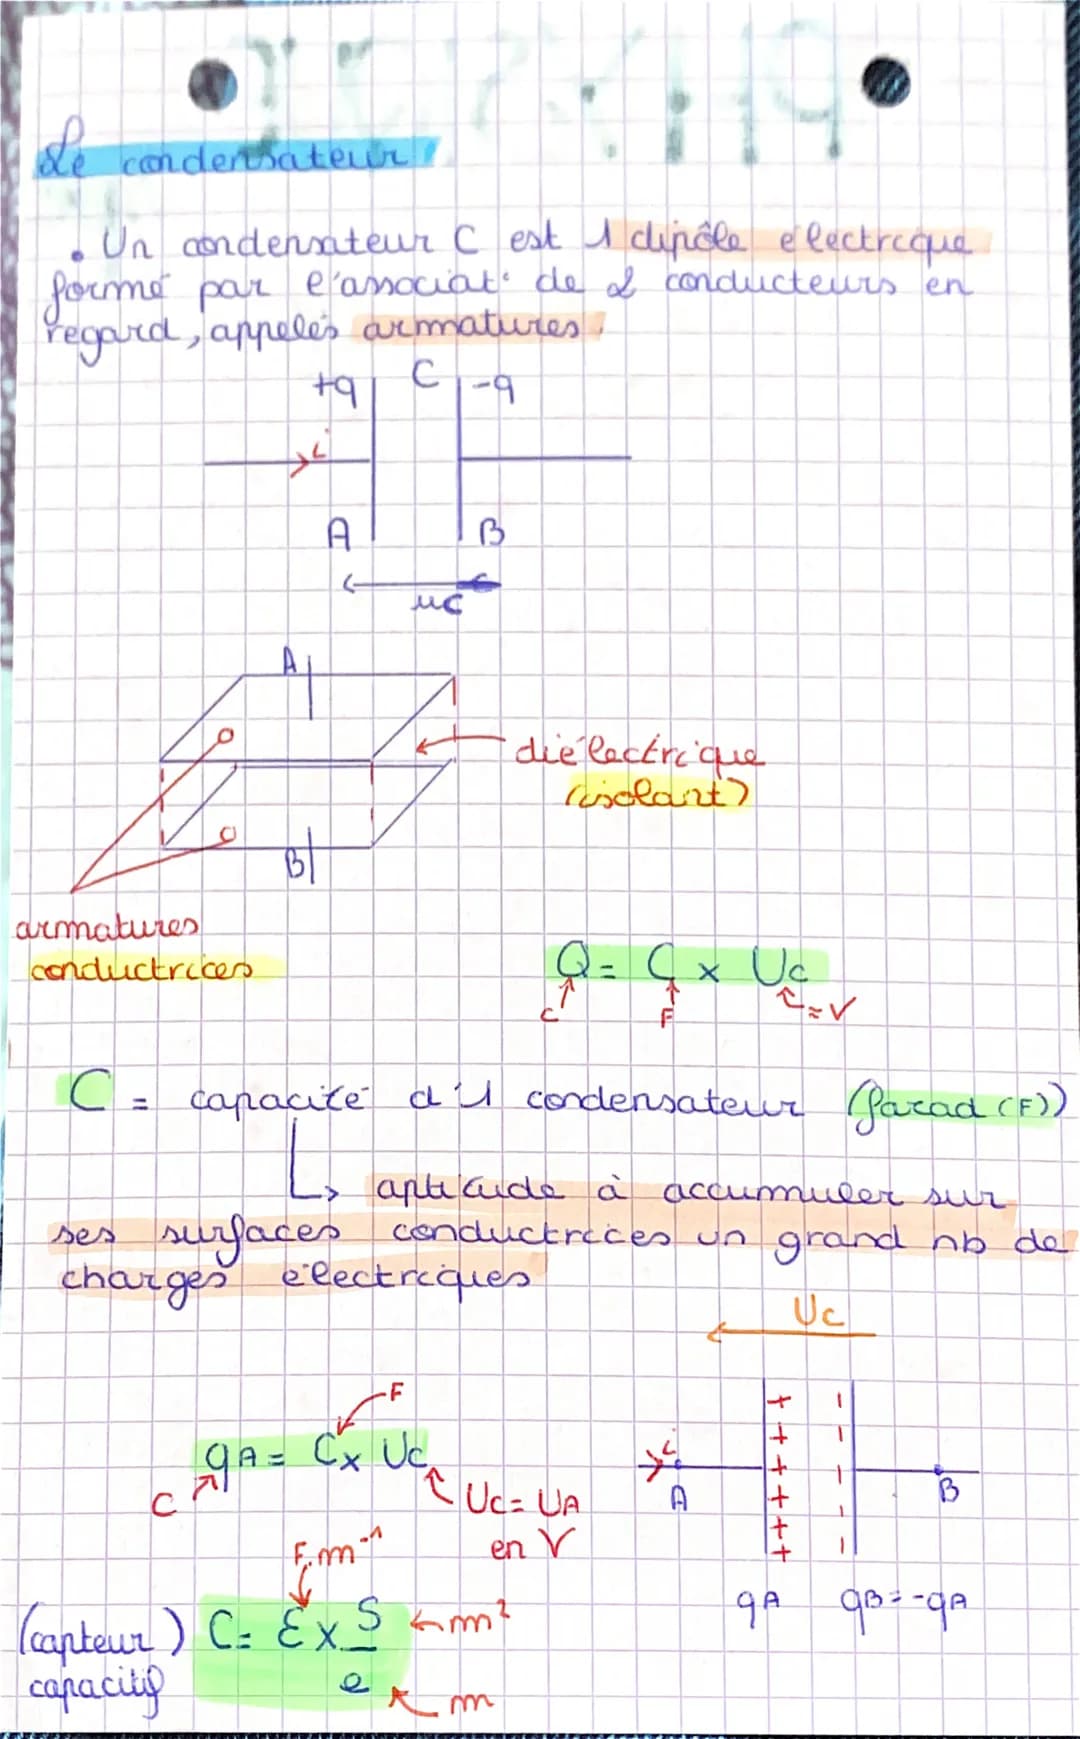 Le condensateur
• Un condensateur C est 1 dipôle électrique
formé par l'associat° de 2 conducteurs en
regard, appelés armatures.
+q C -q
i
A B
uc
A
diélectrique
(isolant)
B
armatures
conductrices
Q = C x Uc
C F = V
C = capacité d'1 condensateur (farad (F))
↳ aptitude à accumuler sur
ses surfaces conductrices un grand nb de
charges électriques
Uc
F
qA = C x Uc
i
A B
C Uc = UA
en V
F.m⁻¹
qA qB = -qA
(capteur) C = Ɛ x S ← m²
capacitif e ← m